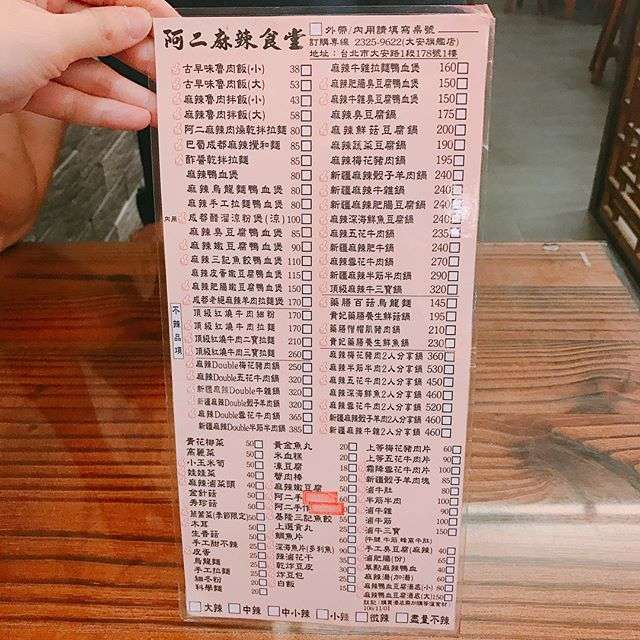 阿二麻辣食堂
□外帶/內用請填寫桌號
訂購專線 2325-9622(大安旗艦店)
地址：台北市大安路1段178號1樓
古早味魯肉飯(小) 38
古早味魯肉飯(大) 53
麻辣魯肉拌飯(小) 43
麻辣魯肉拌飯(大) 58
阿二麻辣肉燥乾拌拉麵 80
巴蜀成都麻辣攪和麵 85
酢醬乾拌拉麵 85
麻辣鴨血煲 80
麻辣烏龍麵鴨血煲 80
麻辣手工拉麵鴨血煲 80
內用 成都醋溜涼粉煲(涼) 100
麻辣臭豆腐鴨血煲 85
麻辣嫩豆腐鴨血煲 90
麻辣三記魚餃鴨血煲 110
麻辣皮蛋嫩豆腐鴨血煲 115
麻辣肥腸嫩豆腐鴨血煲 150
成都老媽麻辣羊肉拉麵煲 170
不辣品項
頂級紅燒牛肉細粉 170
頂級紅燒牛肉拉麵 170
頂級紅燒牛肉二寶拉麵 210
頂級紅燒牛肉三寶拉麵 260
麻辣Double梅花豬肉鍋 250
麻辣Double五花牛肉鍋 320
新疆麻辣Double牛雜鍋 320
新疆麻辣Double骰子羊肉鍋 320
麻辣Double雪花牛肉鍋 385
新疆麻辣Double半筋半肉鍋 385
麻辣牛雜拉麵鴨血煲 160
麻辣肥腸臭豆腐鴨血煲 150
麻辣牛雜臭豆腐鴨血煲 150
麻辣臭豆腐鍋 175
麻辣鮮菇豆腐鍋 200
麻辣蔬菜豆腐鍋 190
麻辣梅花豬肉鍋 195
新疆麻辣骰子羊肉鍋 240
新疆麻辣牛雜鍋 240
新疆麻辣肥腸豆腐鍋 240
麻辣深海鮮魚豆腐鍋 240
麻辣五花牛肉鍋 235
新疆麻辣肥牛鍋 240
麻辣雪花牛肉鍋 270
新疆麻辣半筋半肉鍋 290
頂級麻辣牛三寶鍋 320
藥膳百菇烏龍麵 145
貴妃藥膳養生鮮菇鍋 195
藥膳帽肌豬肉鍋 210
貴妃藥膳養生鮮魚鍋 230
麻辣梅花豬肉2人分享鍋 360
麻辣半筋半肉2人分享鍋 530
麻辣五花牛肉2人分享鍋 450
麻辣深海鮮魚2人分享鍋 460
麻辣雪花牛肉2人分享鍋 520
新疆麻辣骰子羊肉2人分享鍋 460
新疆麻辣牛雜2人分享鍋 460
青花椰菜 50
高麗菜 50
小玉米筍 50
娃娃菜 40
麻辣滷菜頭 40
金針菇 50
秀珍菇 50
茼蒿菜(季節限定) 50
木耳
生香菇
手工甜不辣
皮蛋
烏龍麵
手工拉麵
細冬粉
科學麵
黃金魚丸 20
米血糕 20
凍豆腐 18
蟹肉棒 20
麻辣嫩豆腐
阿二手 60
阿二手作 50
基隆三記魚餃 55
上選貢丸
鯛魚片 60
深海魚片(多利魚) 90
辣滷花干 35
乾炸豆皮 30
炸豆包
白飯 15
上等梅花豬肉片 60
上等五花牛肉片 90
霜降雪花牛肉片
新疆骰子羊肉塊
滷牛肚
半筋半肉
滷牛雜
滷牛筋
滷牛三寶
(牛腱 牛筋 蜂窩牛肚)
手工臭豆腐(麻辣)
滷肥腸(份)
單點麻辣鴨血
麻辣湯(加湯)
麻辣鴨血豆腐湯底(小) 80
麻辣鴨血豆腐湯底(大) 150
106/11/01
□大辣 □中辣 □中小辣 □小辣 □微辣 □盡量不辣